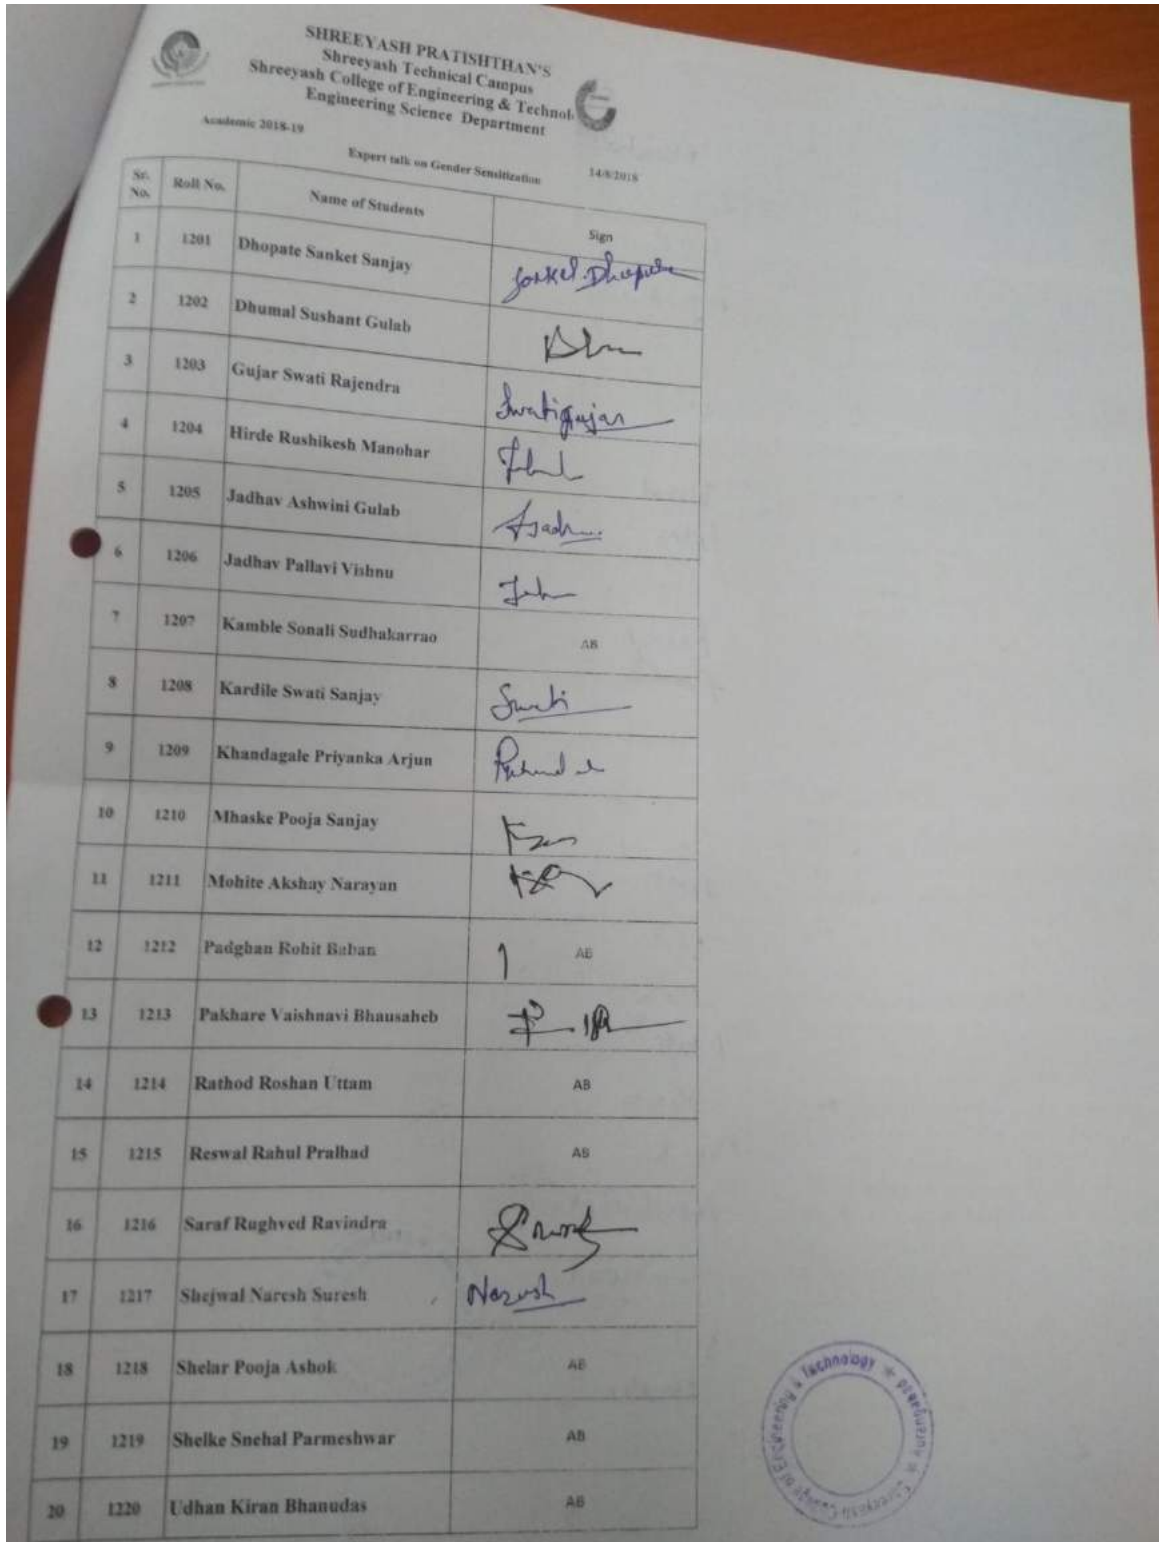 SHREEYASH PRATISHTHAN'S
Shreeyash Technical Campus
Shreeyash College of Engineering & Technol
Engineering Science Department
Academic 2018-19
Expert talk on Gender Sensitization 14/8/2018
Sr. No. Roll No. Name of Students Sign
1 1201 Dhopate Sanket Sanjay
2 1202 Dhumal Sushant Gulab
3 1203 Gujar Swati Rajendra Swatigujar
4 1204 Hirde Rushikesh Manohar
5 1205 Jadhav Ashwini Gulab
6 1206 Jadhav Pallavi Vishnu
7 1207 Kamble Sonali Sudhakarrao AB
8 1208 Kardile Swati Sanjay Swati
9 1209 Khandagale Priyanka Arjun
10 1210 Mhaske Pooja Sanjay
11 1211 Mohite Akshay Narayan
12 1212 Padghan Rohit Baban AB
13 1213 Pakhare Vaishnavi Bhausaheb
14 1214 Rathod Roshan Uttam AB
15 1215 Reswal Rahul Pralhad AB
16 1216 Saraf Rughved Ravindra
17 1217 Shejwal Naresh Suresh Naresh
18 1218 Shelar Pooja Ashok AB
19 1219 Shelke Snehal Parmeshwar AB
20 1220 Udhan Kiran Bhanudas AB
Shreeyash College of Engineering & Technology * Aurangabad *